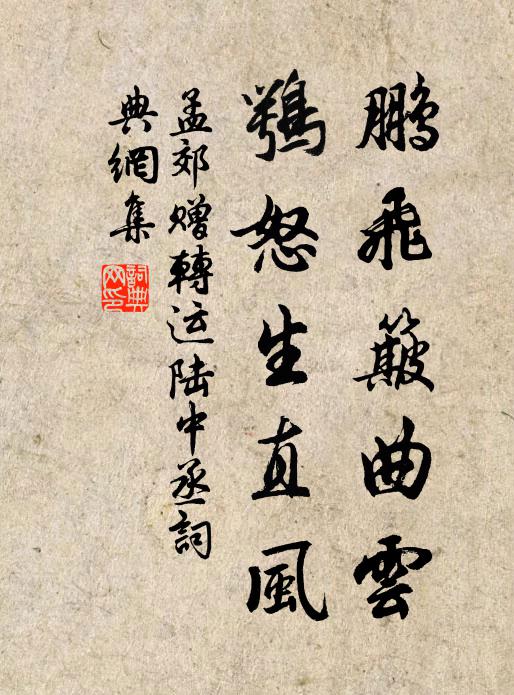 鵬飛簸曲雲
鶚怒生直風
孟郊贈轉运陆中丞詞
典網集
詞典
网印